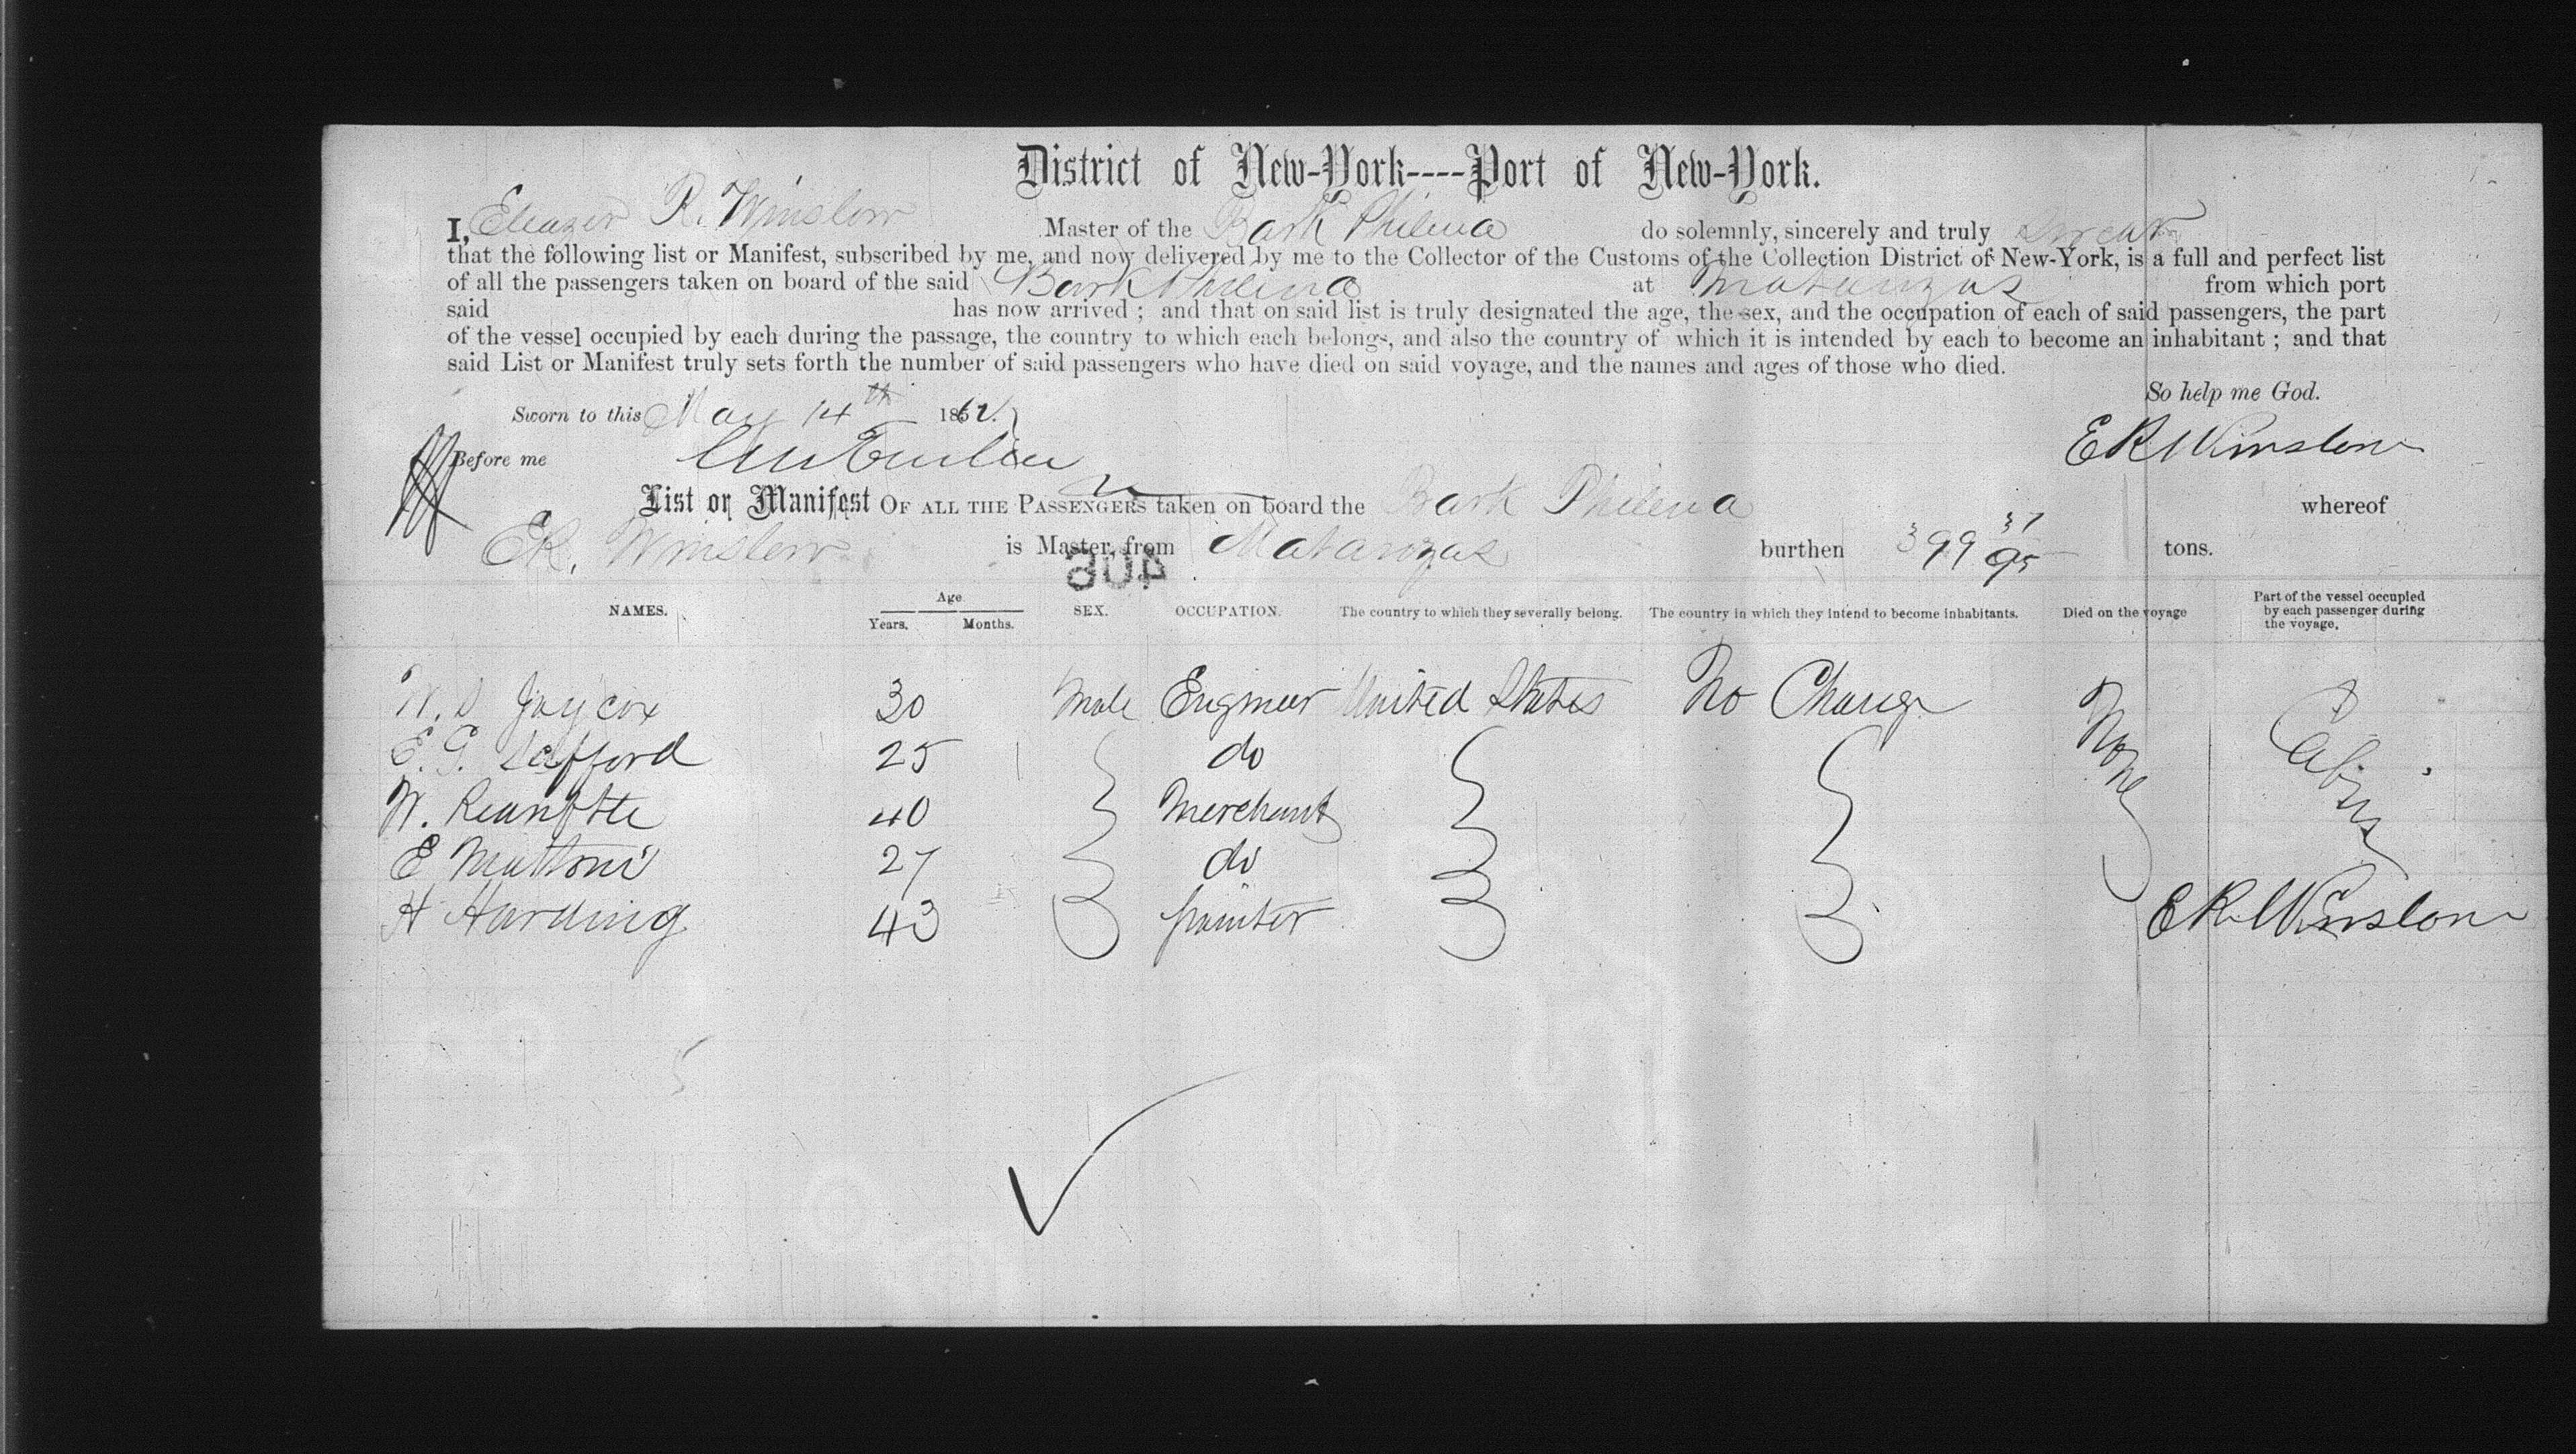 District of New-York----Port of New-York.
I, Eleazer R. Winslow Master of the Bark Philena do solemnly, sincerely and truly Swear
that the following list or Manifest, subscribed by me, and now delivered by me to the Collector of the Customs of the Collection District of New-York, is a full and perfect list
of all the passengers taken on board of the said Bark Philena at Matanzas from which port
said has now arrived ; and that on said list is truly designated the age, the sex, and the occupation of each of said passengers, the part
of the vessel occupied by each during the passage, the country to which each belongs, and also the country of which it is intended by each to become an inhabitant ; and that
said List or Manifest truly sets forth the number of said passengers who have died on said voyage, and the names and ages of those who died.
So help me God.
Sworn to this May 14th 1862.
E R Winslow
Before me
List or Manifest OF ALL THE PASSENGERS taken on board the Bark Philena whereof
E R. Winslow is Master, from Matanzas burthen 399 37/95 tons.
406
NAMES. Age Years. Months. SEX. OCCUPATION. The country to which they severally belong. The country in which they intend to become inhabitants. Died on the voyage Part of the vessel occupied by each passenger during the voyage.
W. S Jaycox 30 Male Engineer United States No Change None Cabin
E. G. Safford 25 do
W. 40 Merchant
E 27 do
H Harding 43 painter
E R Winslow